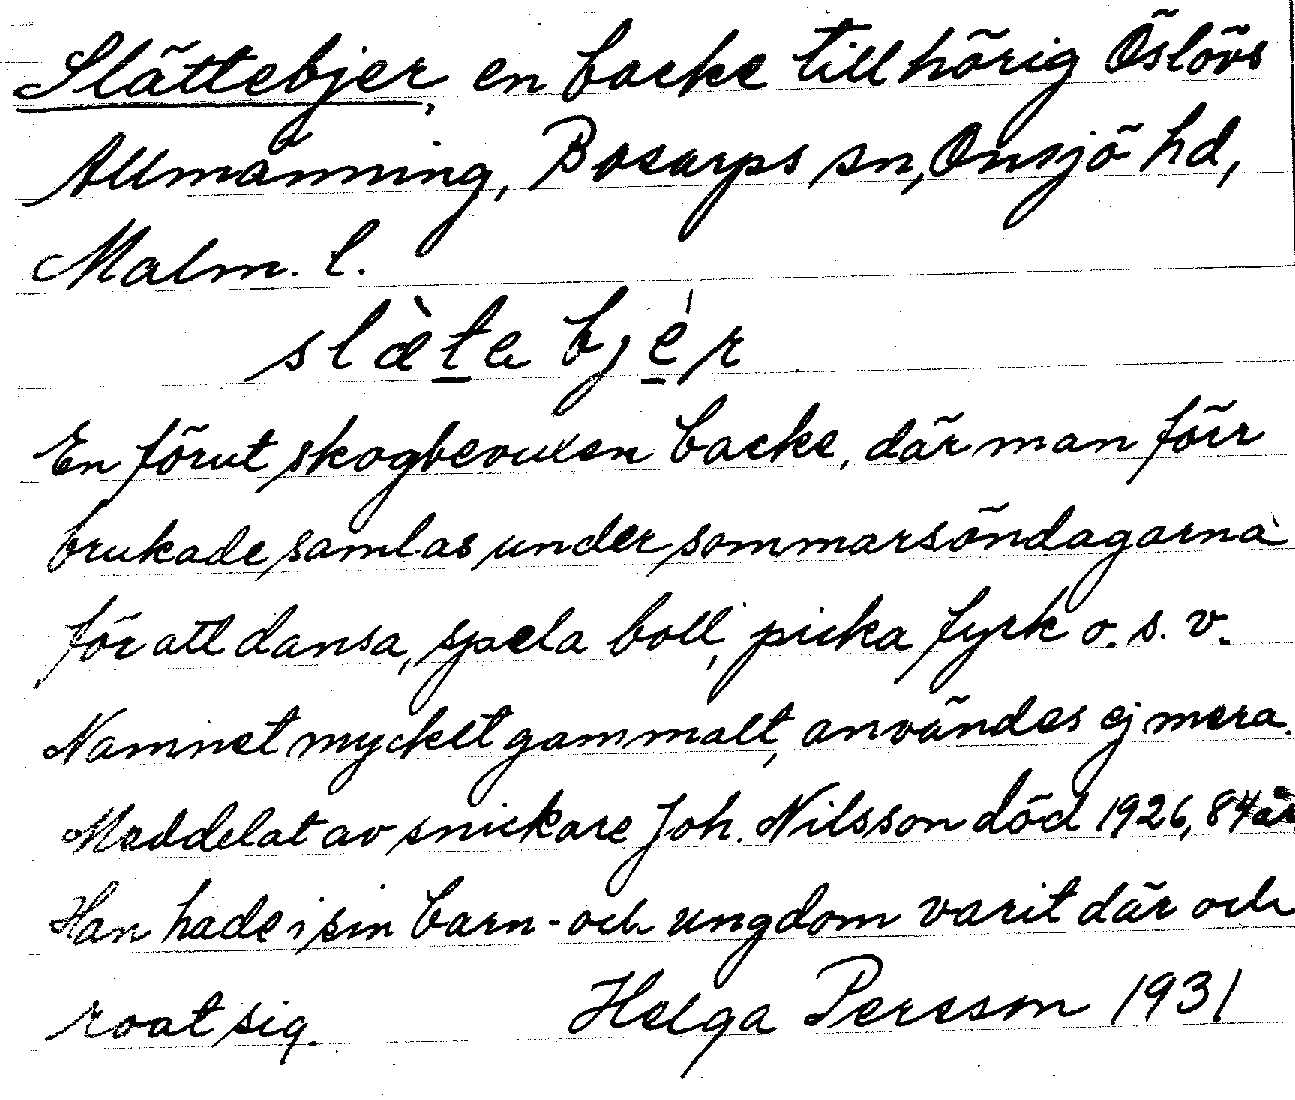 Slättebjer, en backe tillhörig Öslövs
Allmänning, Bosarps sn, Onsjö hd,
Malm. l.
slæ̀ta bjér
En förut skogbevuxen backe, där man förr
brukade samlas under sommarsöndagarna
för att dansa, spela boll, picka fyrk o. s. v.
Namnet mycket gammalt, användes ej mera.
Meddelat av snickare Joh. Nilsson död 1926, 84 år
Han hade i sin barn- och ungdom varit där och
roat sig. Helga Persson 1931